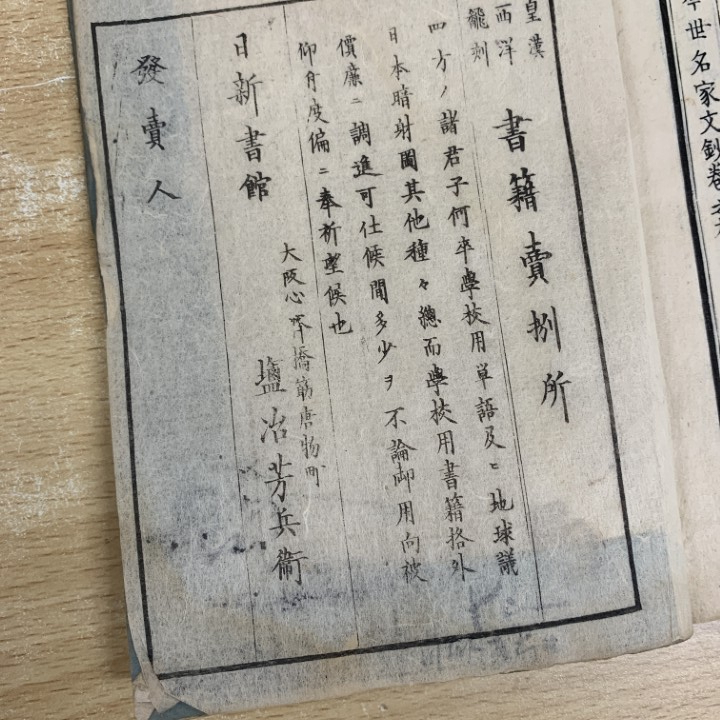 皇漢
西洋
龍刻
書籍賣捌所
四方ノ諸君子何卒學校用単語及ヒ地球議
日本暗射圖其他種々總而學校用書籍格外
價廉ニ調進可仕候間多少ヲ不論御用向被
仰付度偏ニ奉祈望候也
大阪心斎橋筋唐物町
日新書館
鹽冶芳兵衞
發賣人
世名家文鈔卷